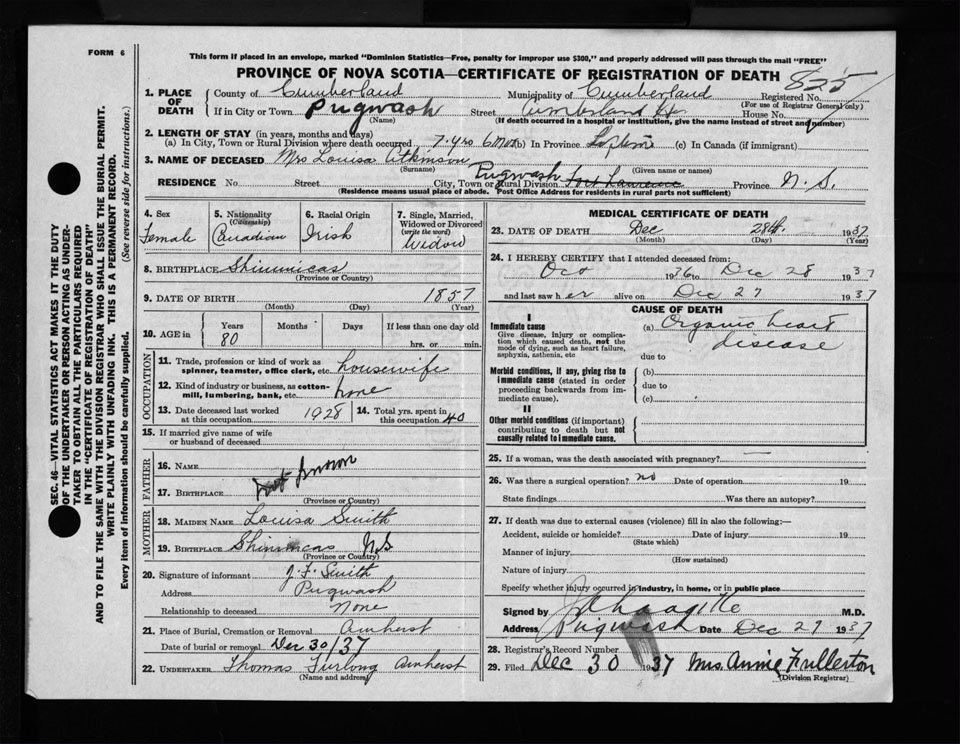 FORM 6
This form if placed in an envelope, marked "Dominion Statistics—Free, penalty for improper use $300," and properly addressed will pass through the mail "FREE"
PROVINCE OF NOVA SCOTIA—CERTIFICATE OF REGISTRATION OF DEATH
825
1. PLACE OF DEATH
County of Cumberland Municipality of Cumberland Registered No.
(For use of Registrar General only)
If in City or Town Pugwash Street House No.
(Name) (If death occurred in a hospital or institution, give the name instead of street and number)
2. LENGTH OF STAY (in years, months and days)
(a) In City, Town or Rural Division where death occurred 7 yrs 6 mos (b) In Province Lifetime (c) In Canada (if immigrant)
3. NAME OF DECEASED Mrs Louisa Atkinson
(Surname) (Given name or names)
RESIDENCE No Street City, Town or Rural Division Pugwash Fort Lawrence Province N.S.
(Residence means usual place of abode. Post Office Address for residents in rural parts not sufficient)
4. Sex
Female
5. Nationality
(Citizenship)
Canadian
6. Racial Origin
Irish
7. Single, Married, Widowed or Divorced
(write the word)
Widow
8. BIRTHPLACE Shinimicas
(Province or Country)
9. DATE OF BIRTH 1857
(Month) (Day) (Year)
10. AGE in Years Months Days If less than one day old
80 hrs. or min.
OCCUPATION
11. Trade, profession or kind of work as spinner, teamster, office clerk, etc. housewife
12. Kind of industry or business, as cotton-mill, lumbering, bank, etc. home
13. Date deceased last worked at this occupation 1928
14. Total yrs. spent in this occupation 40
15. If married give name of wife or husband of deceased
FATHER
16. NAME not known
17. BIRTHPLACE
(Province or Country)
MOTHER
18. MAIDEN NAME Louisa Smith
19. BIRTHPLACE Shinimicas N.S
(Province or Country)
20. Signature of informant J. F. Smith
Address Pugwash
Relationship to deceased None
21. Place of Burial, Cremation or Removal Amherst
Date of burial or removal Dec 30/37
22. UNDERTAKER Thomas Furlong Amherst
(Name and address)
MEDICAL CERTIFICATE OF DEATH
23. DATE OF DEATH Dec 28th 1937
(Month) (Day) (Year)
24. I HEREBY CERTIFY that I attended deceased from:
Oct 1936 to Dec 28 1937
and last saw her alive on Dec 27 1937
CAUSE OF DEATH
I
Immediate cause
Give disease, injury or complication which caused death, not the mode of dying, such as heart failure, asphyxia, asthenia, etc
(a) Organic heart disease
due to
Morbid conditions, if any, giving rise to immediate cause (stated in order proceeding backwards from immediate cause).
(b)
due to
(c)
II
Other morbid conditions (if important) contributing to death but not causally related to immediate cause.
25. If a woman, was the death associated with pregnancy? —
26. Was there a surgical operation? no Date of operation 19
State findings Was there an autopsy?
27. If death was due to external causes (violence) fill in also the following:—
Accident, suicide or homicide? Date of injury 19
(State which)
Manner of injury
(How sustained)
Nature of injury
Specify whether injury occurred in industry, in home, or in public place
Signed by M.D.
Address Pugwash Date Dec 29 1937
28. Registrar's Record Number
29. Filed Dec 30 1937 Mrs. Annie Fullerton
(Division Registrar)
SEC. 46—VITAL STATISTICS ACT MAKES IT THE DUTY
OF THE UNDERTAKER OR PERSON ACTING AS UNDER-
TAKER TO OBTAIN ALL THE PARTICULARS REQUIRED
IN THE "CERTIFICATE OF REGISTRATION OF DEATH"
AND TO FILE THE SAME WITH THE DIVISION REGISTRAR WHO SHALL ISSUE THE BURIAL PERMIT.
WRITE PLAINLY WITH UNFADING INK. THIS IS A PERMANENT RECORD.
Every item of information should be carefully supplied. (See reverse side for instructions.)